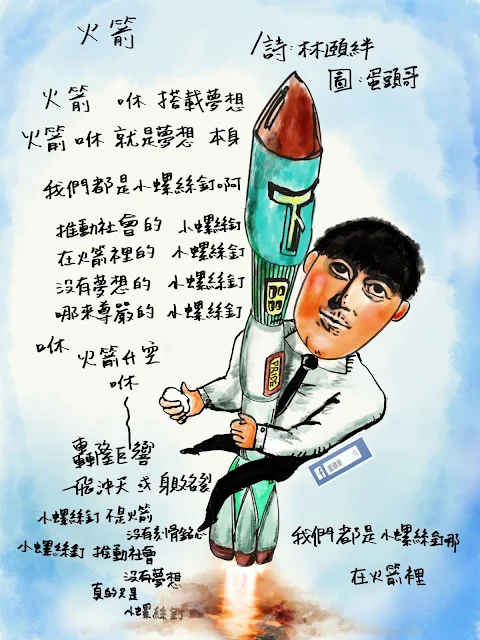 火箭
/詩:林頤絆
圖:蛋頭哥
火箭 咻 搭載夢想
火箭 咻 就是夢想 本身
我們都是小螺絲釘啊
推動社會的 小螺絲釘
在火箭裡的 小螺絲釘
沒有夢想的 小螺絲釘
哪來尊嚴的 小螺絲釘
咻 火箭升空
咻
轟隆巨響
一飛沖天 或 身敗名裂
小螺絲釘 不是火箭
沒有刻骨銘心
小螺絲釘 推動社會
沒有夢想
真的只是
小螺絲釘
我們都是小螺絲釘那
在火箭裡
蛋頭哥